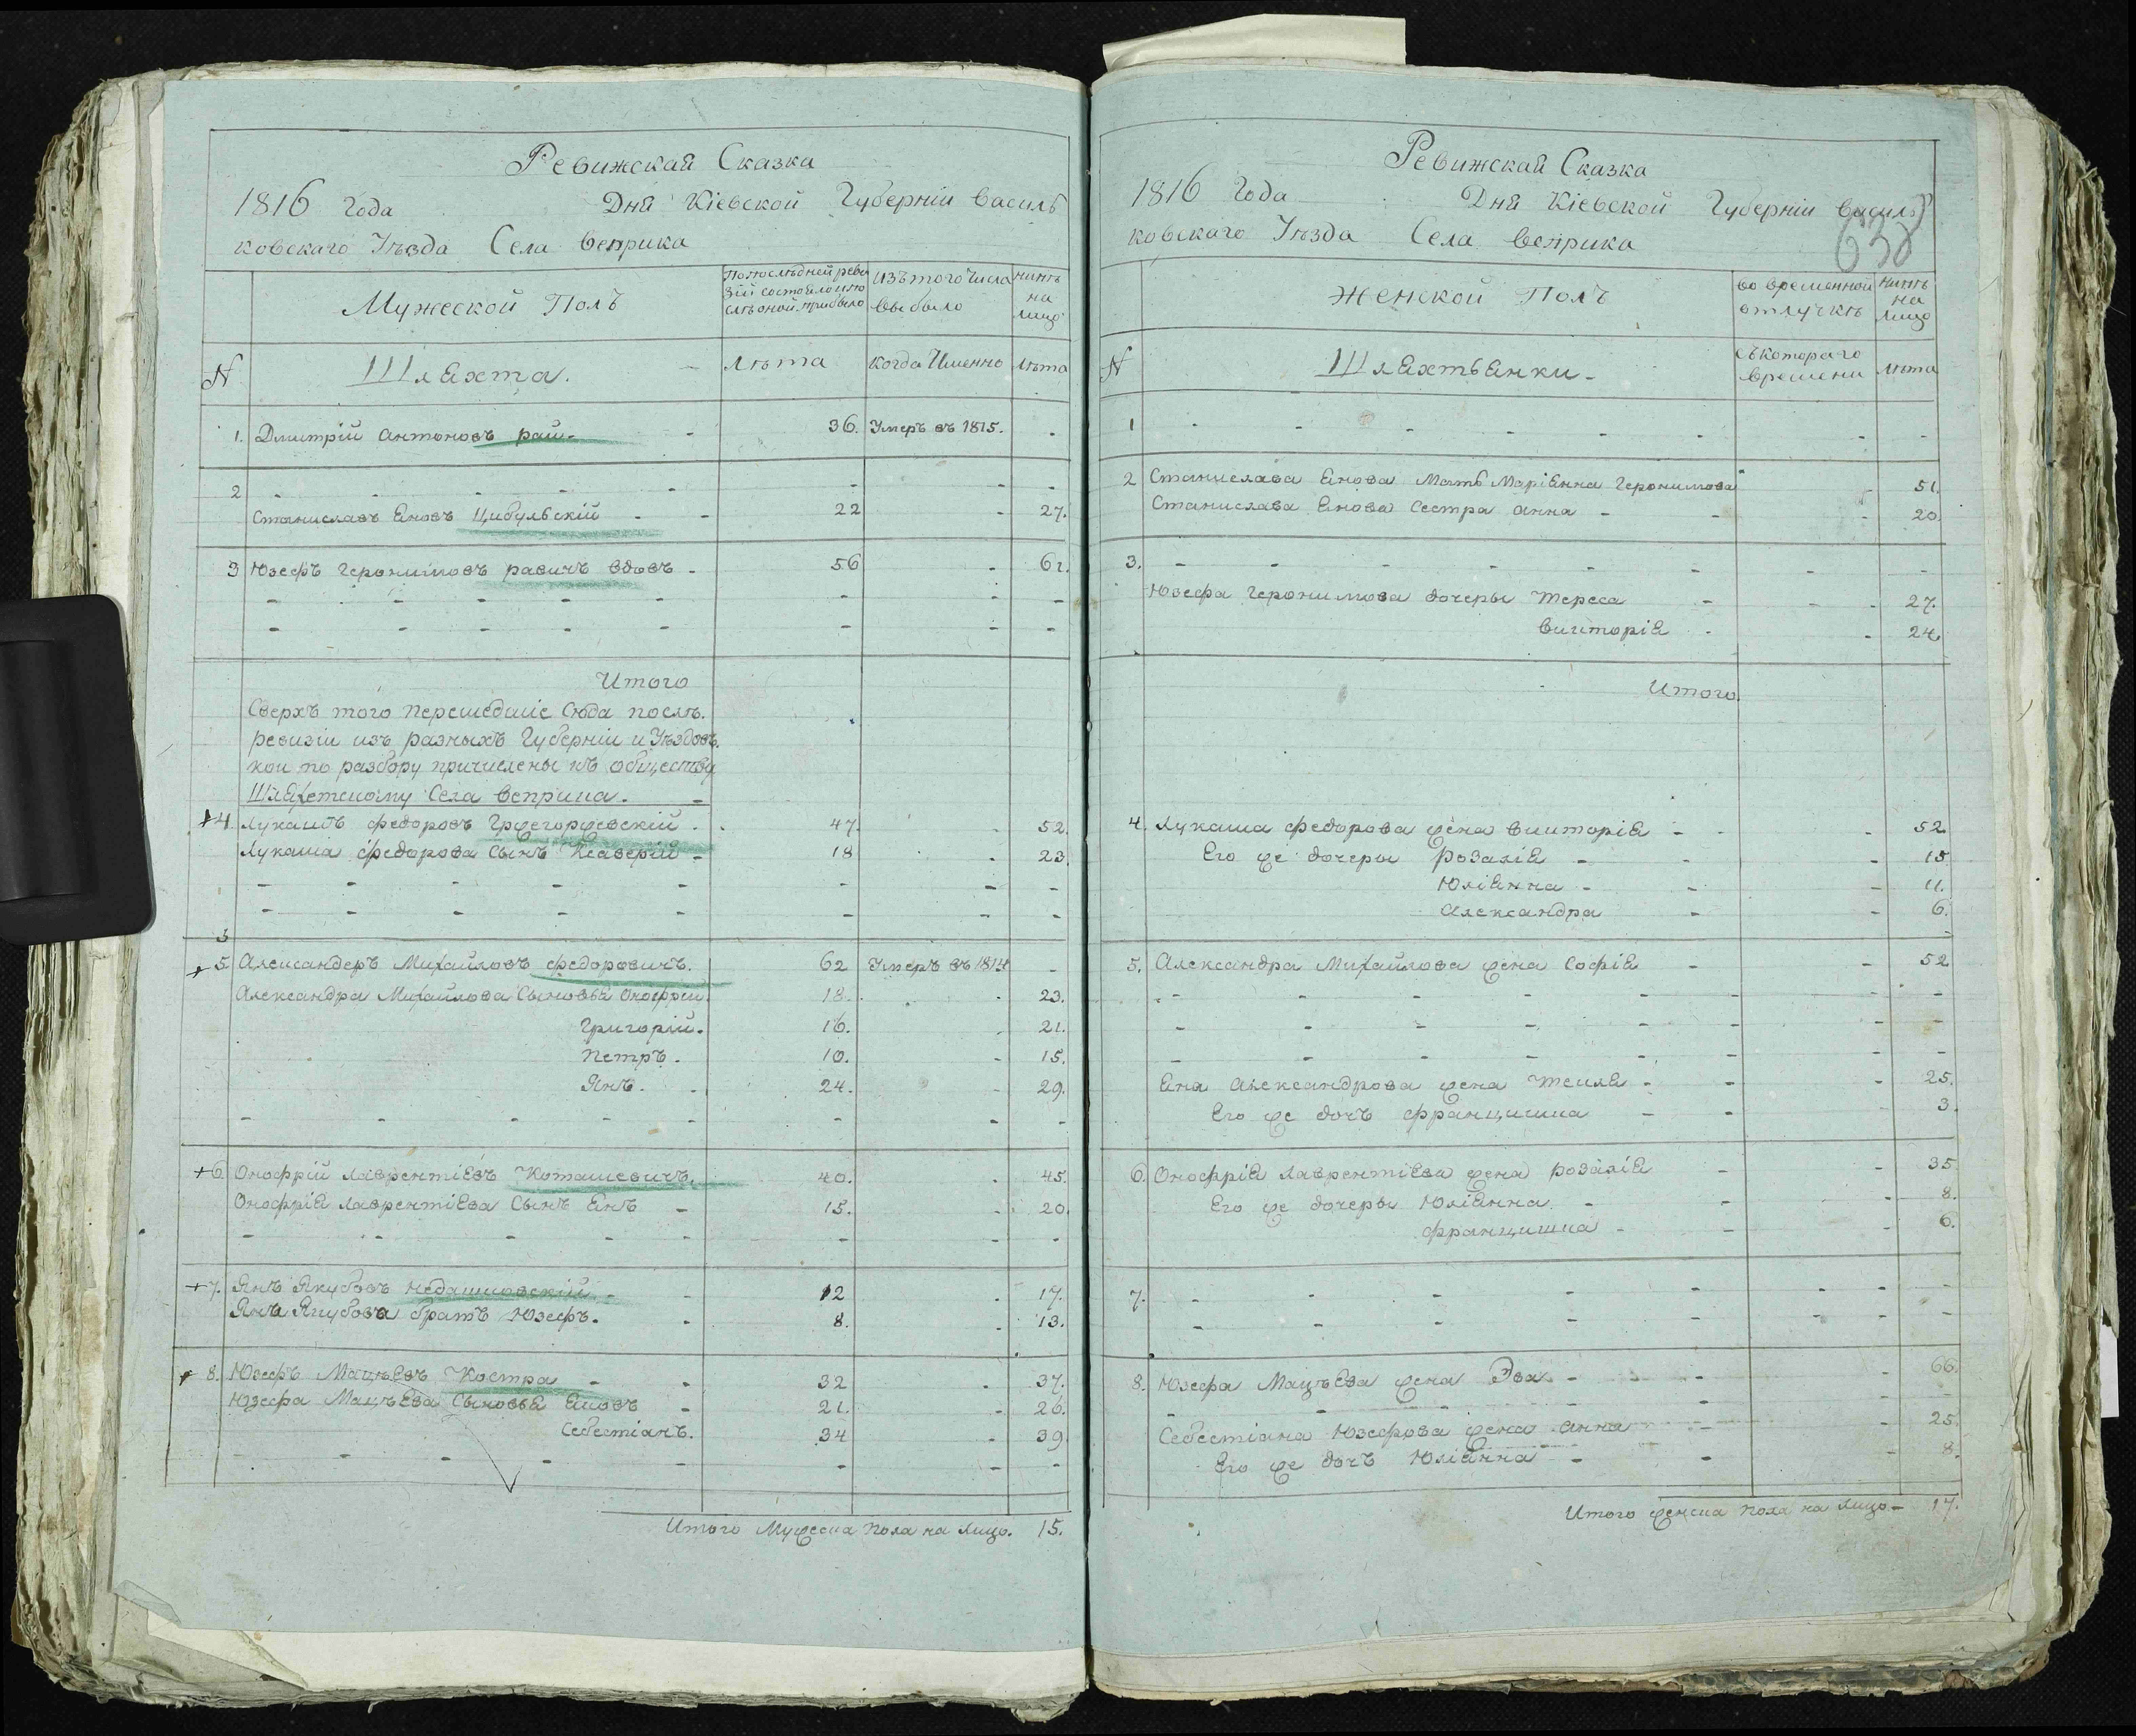 Ревижская Сказка
1816 Года Дня Кіевской Губерніи Василь
ковскаго Уѣзда Села Веприка
Мужеской Полъ
По послѣдней реви
зіи состояло и по
слѣ оной прибыло
Изъ того числа
выбыло
нынѣ
на
лицо
N Шляхта. Лѣта Когда Именно Лѣта
1. Дмитрій Антоновъ рай - 36. Умеръ въ 1815. -
2 - - - - - - - -
Станиславъ Яновъ Цибульскій - - 22 - 27.
3 Юзефъ Геронимовъ равичъ вдовъ - 56 - 61.
- - - - - - - -
- - - - - - - -
Итого
Сверхъ того перешедшіе Сюда послѣ
ревизіи изъ разныхъ Губерніи и Уѣздовъ
кои по разбору причислены къ обществу
Шляхетскому Села Веприка. -
+4. Лукашъ Федоровъ Гржегоржевскій. 47. - 52.
Лукаша Федорова Сынъ Ксаверій - 18 - 23.
- - - - - - - -
- - - - - - - -
+5 Александеръ Михайловъ Федоровичъ. 62 Умеръ въ 1814 -
Александра Михайлова Сыновья Онофрій. 18. - 23.
Григорій. 16. - 21.
Петръ. 10. - 15.
Янъ. - 24. - 29.
- - - - - - - -
+6 Онофрій Лаврентіевъ Коташевичъ. 40. - 45.
Онофрія Лаврентіева Сынъ Янъ - 15. - 20
- - - - - - - -
+7. Янъ Якубовъ Недашковскій - - 12 - 17.
Яна Якубова братъ Юзефъ. - 8. - 13.
+ 8. Юзефъ Мацѣевъ Костра - - 32 - 37.
Юзефа Мацѣева Сыновья - 21. - 26.
Себестіанъ. 34 - 39
- - - - - - - -
Итого Мужеска пола на лицо. 15.
Ревижская Сказка
1816 Года Дня Кіевской Губерніи Василь
ковскаго Уѣзда Села Веприка
Женской Полъ
во временной
отлучкѣ
нынѣ
на
лицо
N Шляхтьянки - съ котораго
времени Лѣта
1 - - - - - - - -
2 Станислава Янова Мать Маріянна Геронимова 51.
Станислава Янова Сестра Анна - - - 20.
3. - - - - - - - -
Юзефа Геронимова дочеры Тереса - - - 27.
Викторія - - 24.
Итого
4. Лукаша Федорова жена Викторія - - - 52
Его же дочеры Розалія - - - 15
Юліянна - - - 11.
Александра - - 6.
5. Александра Михайлова жена Софія - - 52
- - - - - - - -
- - - - - - - -
- - - - - - - -
Яна Александрова жена Текля - - - 25.
Его же дочъ Францишка - - 3.
6. Онофрія Лаврентіева жена Розалія - - 35
Его же дочеры Юліянна - - - 8.
Францишка - - - 6.
7. - - - - - - - -
- - - - - - - -
8. Юзефа Мацѣева жена Эва - - - 66.
- - - - - - -
Себестіана Юзефова жена Анна - - 25.
Его же дочъ Юліянна - - - 8.
Итого женска пола на лицо - 17.